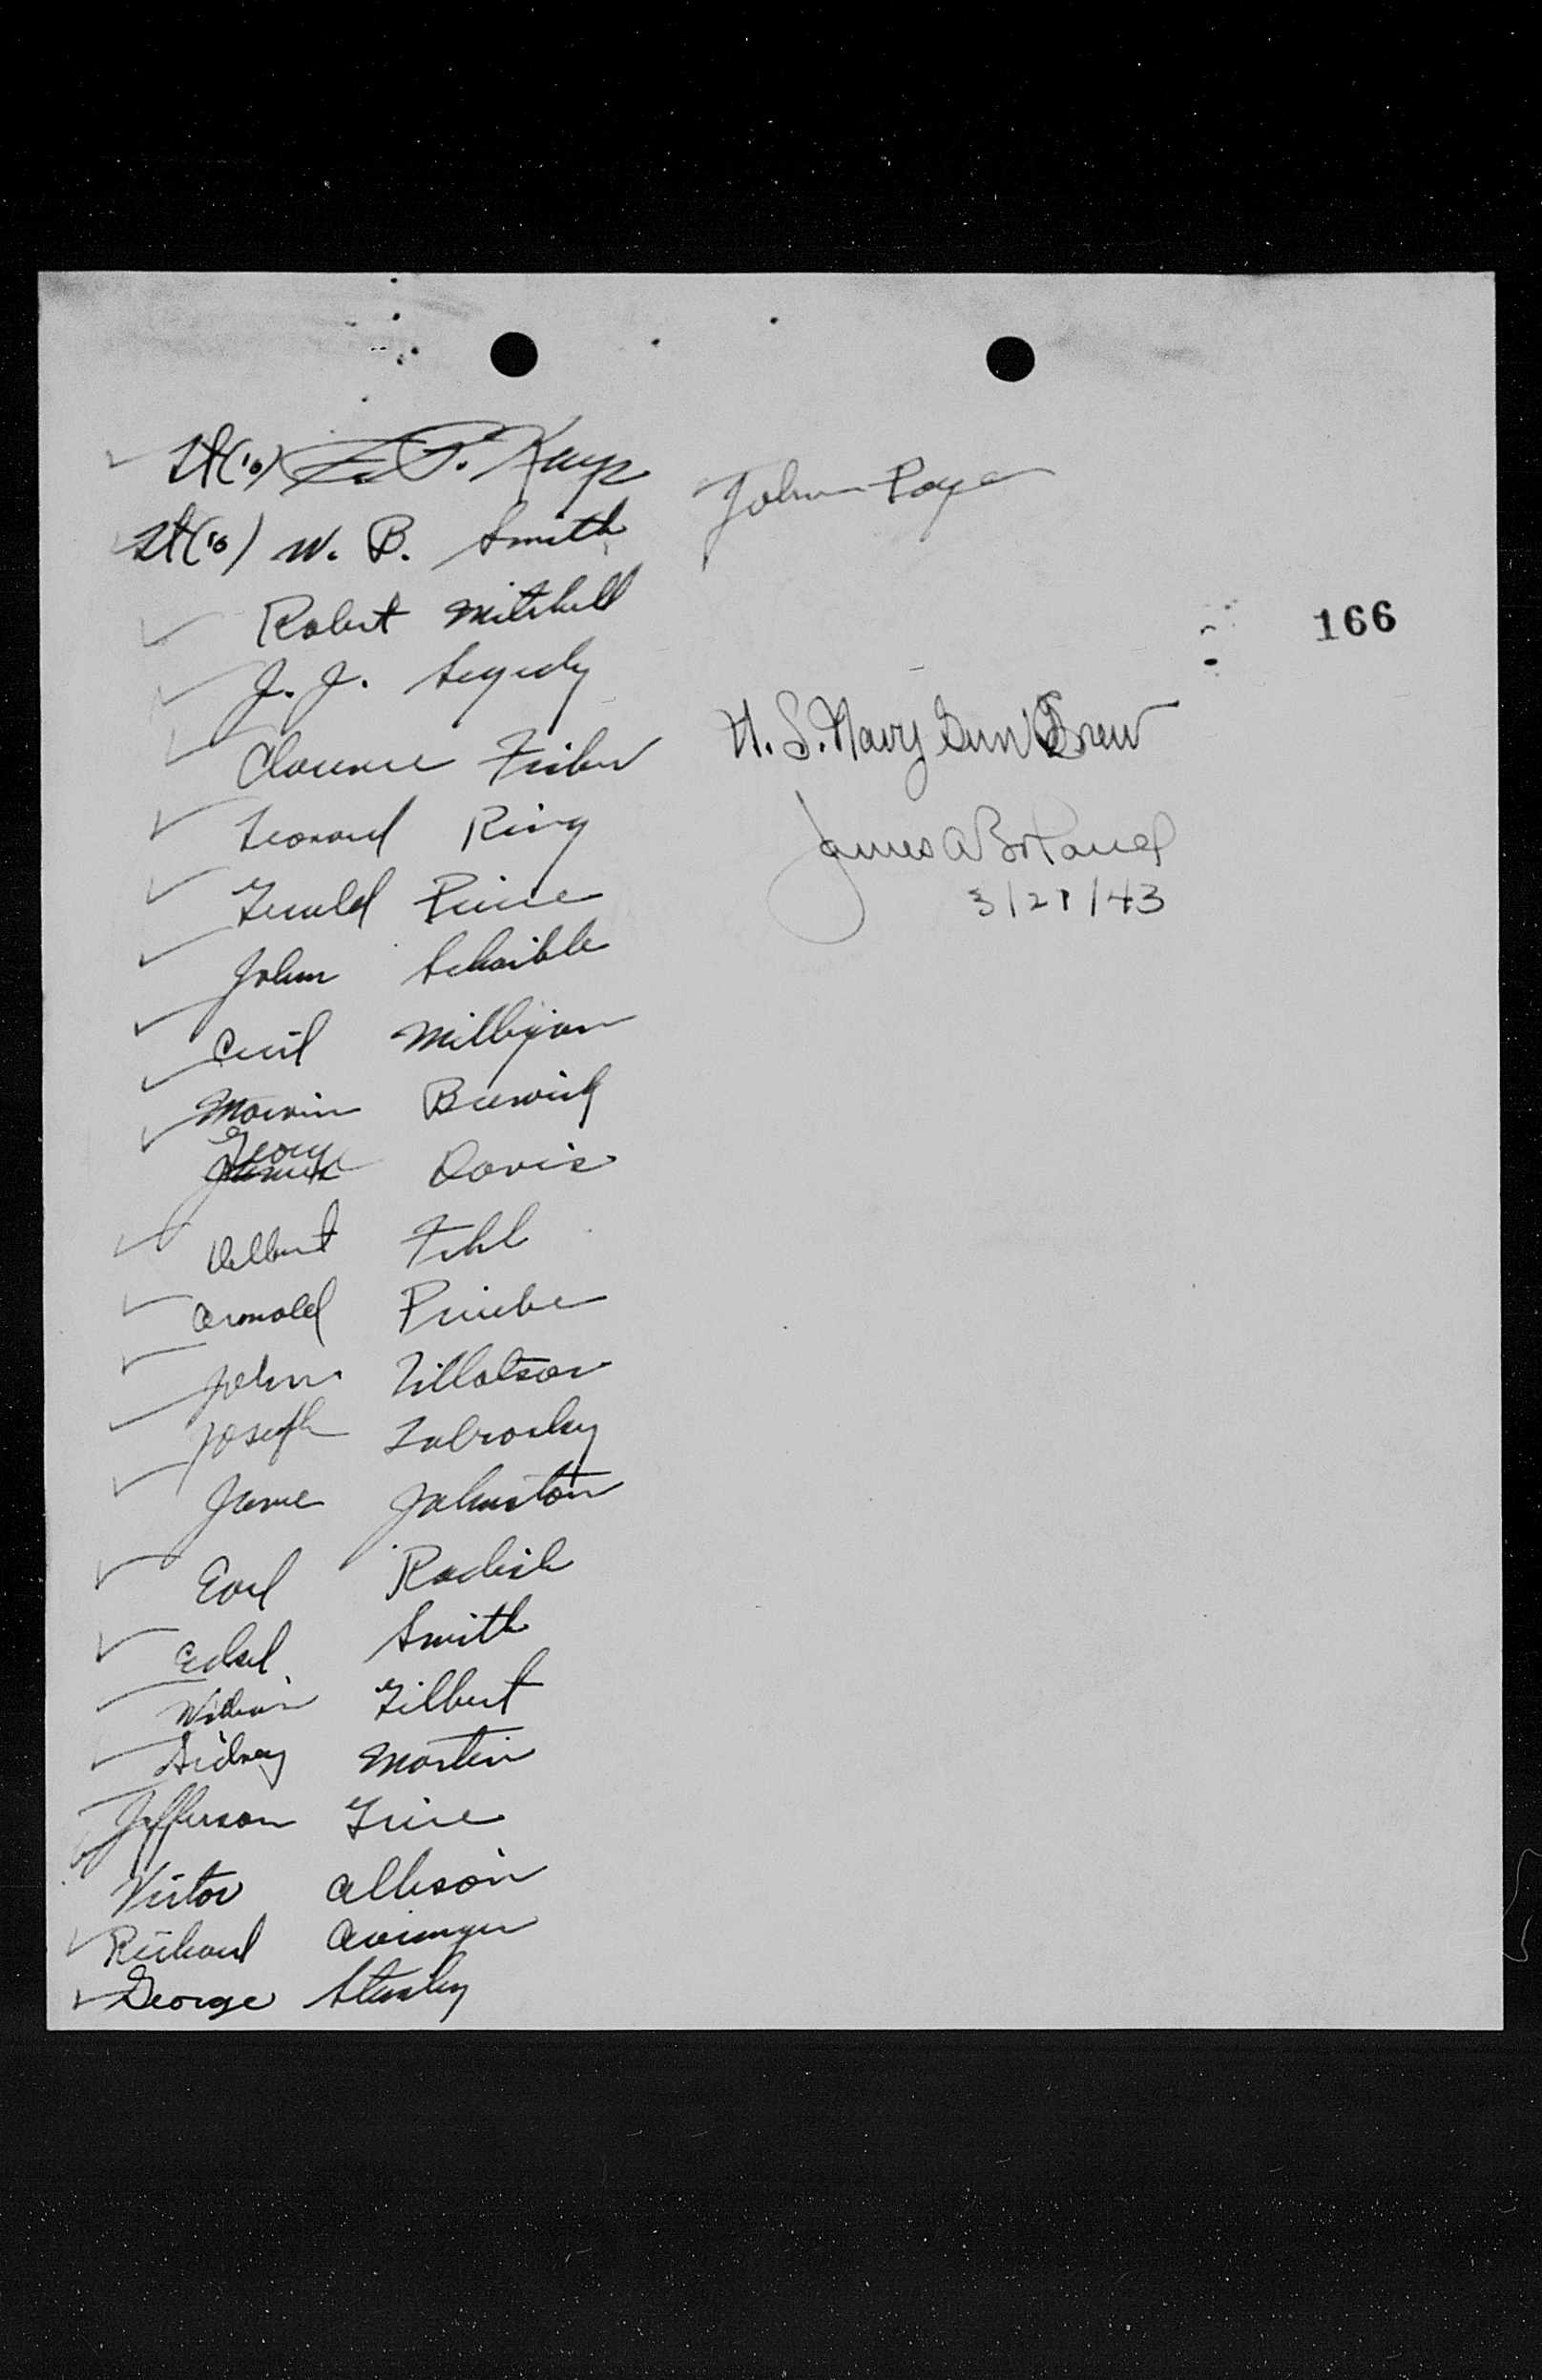 Lt(jg) P. Kays
Lt(jg) W. B. Smith
Robert Mitchell
J. J. Segedy
Clarence
Leonard Ring
Gerald Price
John Schaible
Cecil Milligan
Marvin
George Davis
Delbert Fehl
Arnold
John Tillotson
Joseph Zabrosky
Jame Johnston
Earl Radish
Edsel Smith
William Gilbert
Sidney Martin
Jefferson
Victor Allison
Richard Avinger
George Stanley
John Page
166
U.S. Navy Gun Crew
James A Borland
3/21/43